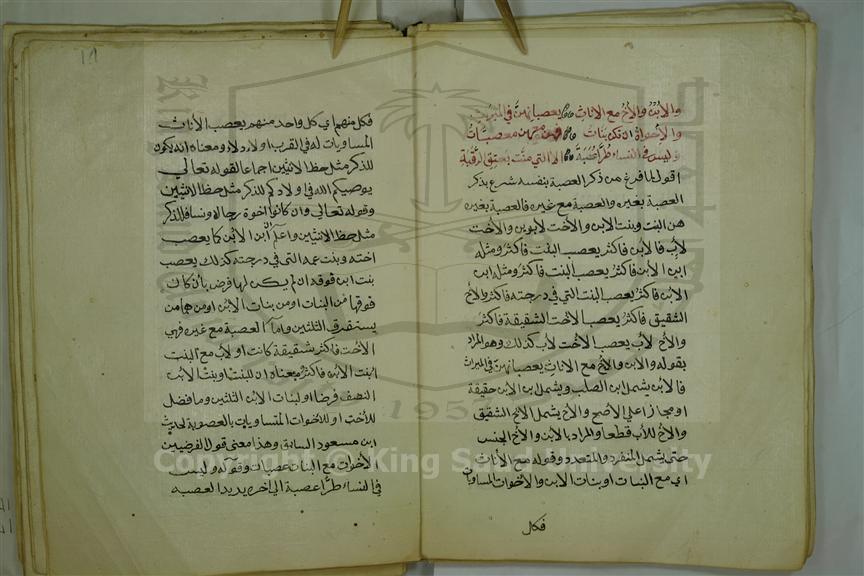 والابن والأخ مع الاناث يعصبانهن في الميراث
والاخوات ان تكن بنات فهن معهن معصبات
وليس في النساء طرا عصبة الا التي منت بعتق الرقبة
اقول لما فرغ من ذكر العصبة بنفسه شرع يذكر
العصبة بغيره والعصبة مع غيره فالعصبة بغيره
هن البنت وبنت الابن والاخت لابوين والاخت
لاب فالابن فاكثر يعصب البنت فاكثر ومثله
ابن الابن فاكثر يعصب البنت فاكثر ومثل ابن
الابن فاكثر يعصب البنت التي في درجته فاكثر والاخ
الشقيق فاكثر يعصب الاخت الشقيقة فاكثر
والاخ لاب يعصب الاخت لاب كذلك وهو المراد
بقوله والابن والاخ مع الاناث يعصبانهن في الميراث
فالابن يشمل ابن الصلب ويشمل ابن الابن حقيقة
او مجازا على الاصح والاخ يشمل الاخ الشقيق
والاخ للاب قطعا والمراد بالابن والاخ الجنس
حتى يشمل المنفرد والمتعدد وقوله مع الاناث
اي مع البنات او بنات الابن والاخوات المساويات
فكل
فكل منهم اي كل واحد منهم يعصب الأناث
المساويات له في القرب اولادا ومعناه انه يكون
للذكر مثل حظ الانثيين اجماعا لقوله تعالى
يوصيكم الله في اولادكم للذكر مثل حظ الانثيين
وقوله تعالى وان كانوا اخوة رجالا ونساء فللذكر
مثل حظ الانثيين واعلم ان ابن الابن كما يعصب
اخته وبنت عمه التي في درجته كذلك يعصب
بنت ابن فوقه ان لم يكن لها فرض بأن كان
فوقها من البنات او من بنات الابن او منهما من
يستغرق الثلثين واما العصبة مع غيره فهي
الاخت فاكثر شقيقة كانت او لاب مع البنت
او بنت الابن فاكثر معناه ان للبنت او بنت الابن
النصف فرضا او لبنات الابن الثلثين وما فضل
للأخت او للأخوات المتساويات بالعصوبة لحديث
ابن مسعود السابق وهذا معنى قول الفرضيين
الأخوات مع البنات عصبات وقوله وليس
في النساء طرا عصبة الى اخره يريد العصبه
Copyright © King Saud University
195